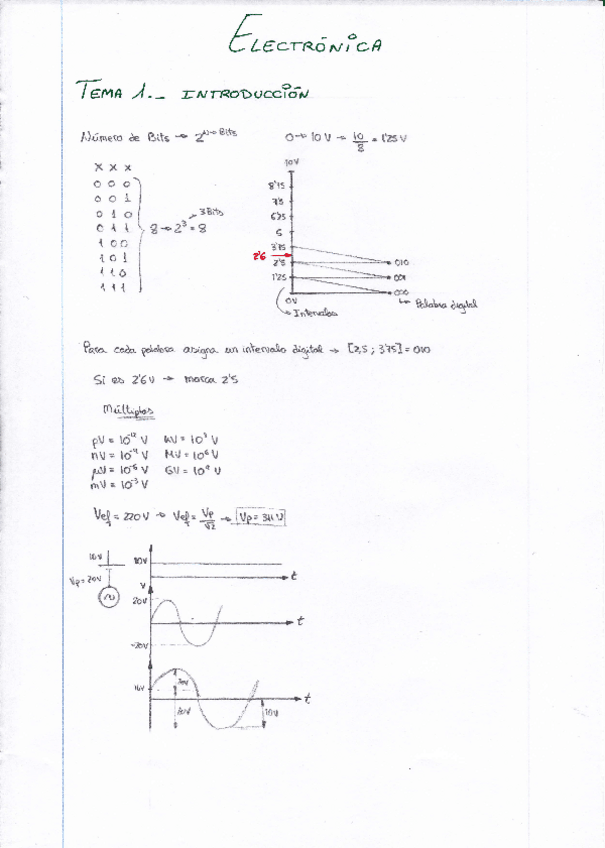 ELECTRÓNICA
TEMA 1.- INTRODUCCIÓN
Número de Bits → 2^N→Bits
0→10V → 10/8 = 1'25 V
x x x
0 0 0
0 0 1
0 1 0
0 1 1
1 0 0
1 0 1
1 1 0
1 1 1
8 → 2³ = 8
3 Bits
10V
8'75
7'5
6'25
5
3'75
2'6
2'5
1'25
0V
010
001
000
Palabra digital
Intervalos
Para cada palabra asigna un intervalo digital → [2,5 ; 3'75] = 010
Si es 2'6V → marca 2'5
Múltiplos
pV = 10⁻¹² V
nV = 10⁻⁹ V MV = 10⁶ V
μV = 10⁻⁶ V GV = 10⁹ V
mV = 10⁻³ V
Vef = 220V → Vef = Vp/√2 → Vp = 311 V
10V
Vp = 20V
10V
t
V
20V
-20V
t
10V
20V
10V
t